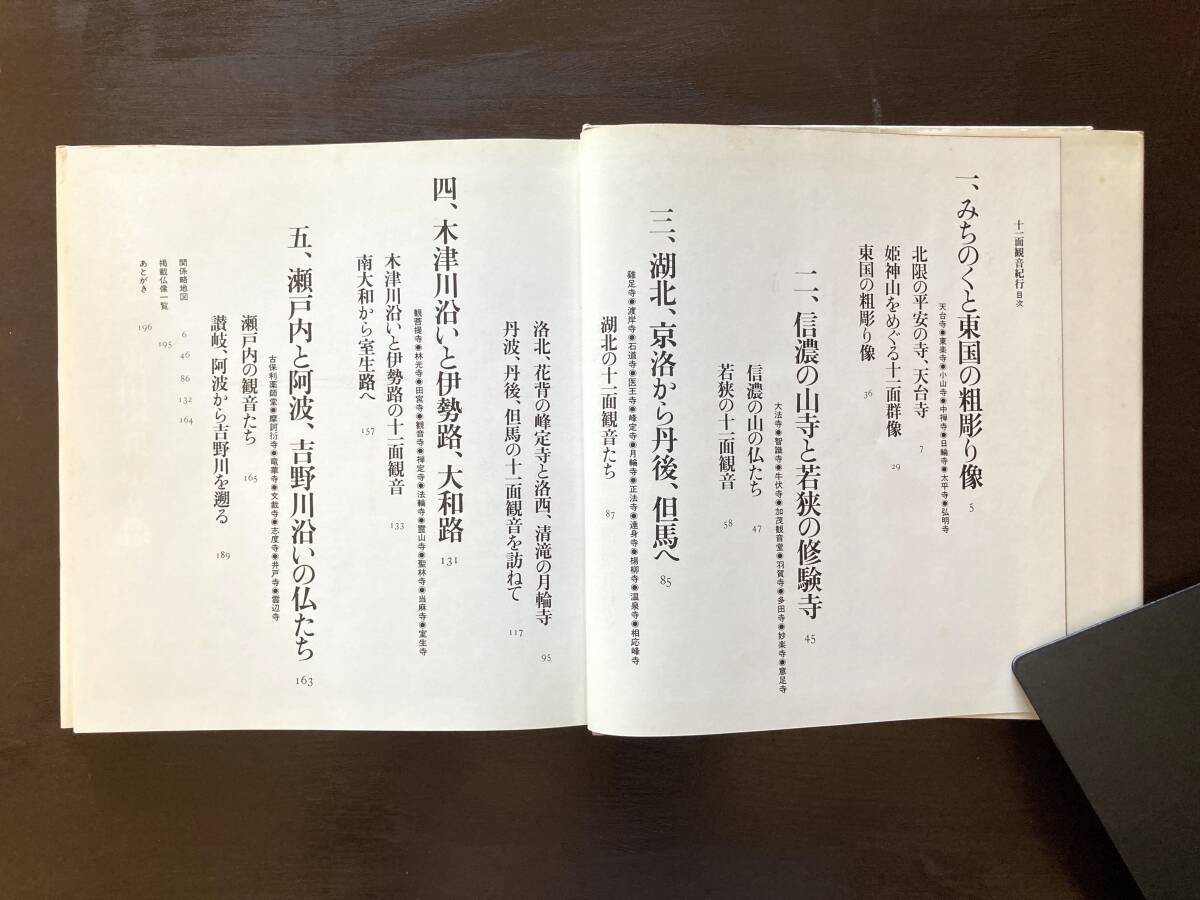 十一面観音紀行 目次
一、みちのくと東国の粗彫り像 5
天台寺◉東楽寺◉小山寺◉中禅寺◉日輪寺◉太平寺◉弘明寺
北限の平安の寺、天台寺 7
姫神山をめぐる十一面群像 29
東国の粗彫り像 36
二、信濃の山寺と若狭の修験寺 45
大法寺◉智識寺◉牛伏寺◉加茂観音堂◉羽賀寺◉多田寺◉妙楽寺◉意足寺
信濃の山の仏たち 47
若狭の十一面観音 58
三、湖北、京洛から丹後、但馬へ 85
雞足寺◉渡岸寺◉石道寺◉医王寺◉峰定寺◉月輪寺◉正法寺◉達身寺◉楊柳寺◉温泉寺◉相応峰寺
湖北の十一面観音たち 87
洛北、花背の峰定寺と洛西、清滝の月輪寺 95
丹波、丹後、但馬の十一面観音を訪ねて 117
四、木津川沿いと伊勢路、大和路 131
観菩提寺◉林光寺◉田宮寺◉観音寺◉禅定寺◉法輪寺◉霊山寺◉聖林寺◉当麻寺◉室生寺
木津川沿いと伊勢路の十一面観音 133
南大和から室生路へ 157
五、瀬戸内と阿波、吉野川沿いの仏たち 163
古保利薬師堂◉摩訶衍寺◉竜華寺◉文裁寺◉志度寺◉井戸寺◉雲辺寺
瀬戸内の観音たち 165
讃岐、阿波から吉野川を遡る 189
関係略地図 6 46 86 132 164
掲載仏像一覧 195
あとがき 196